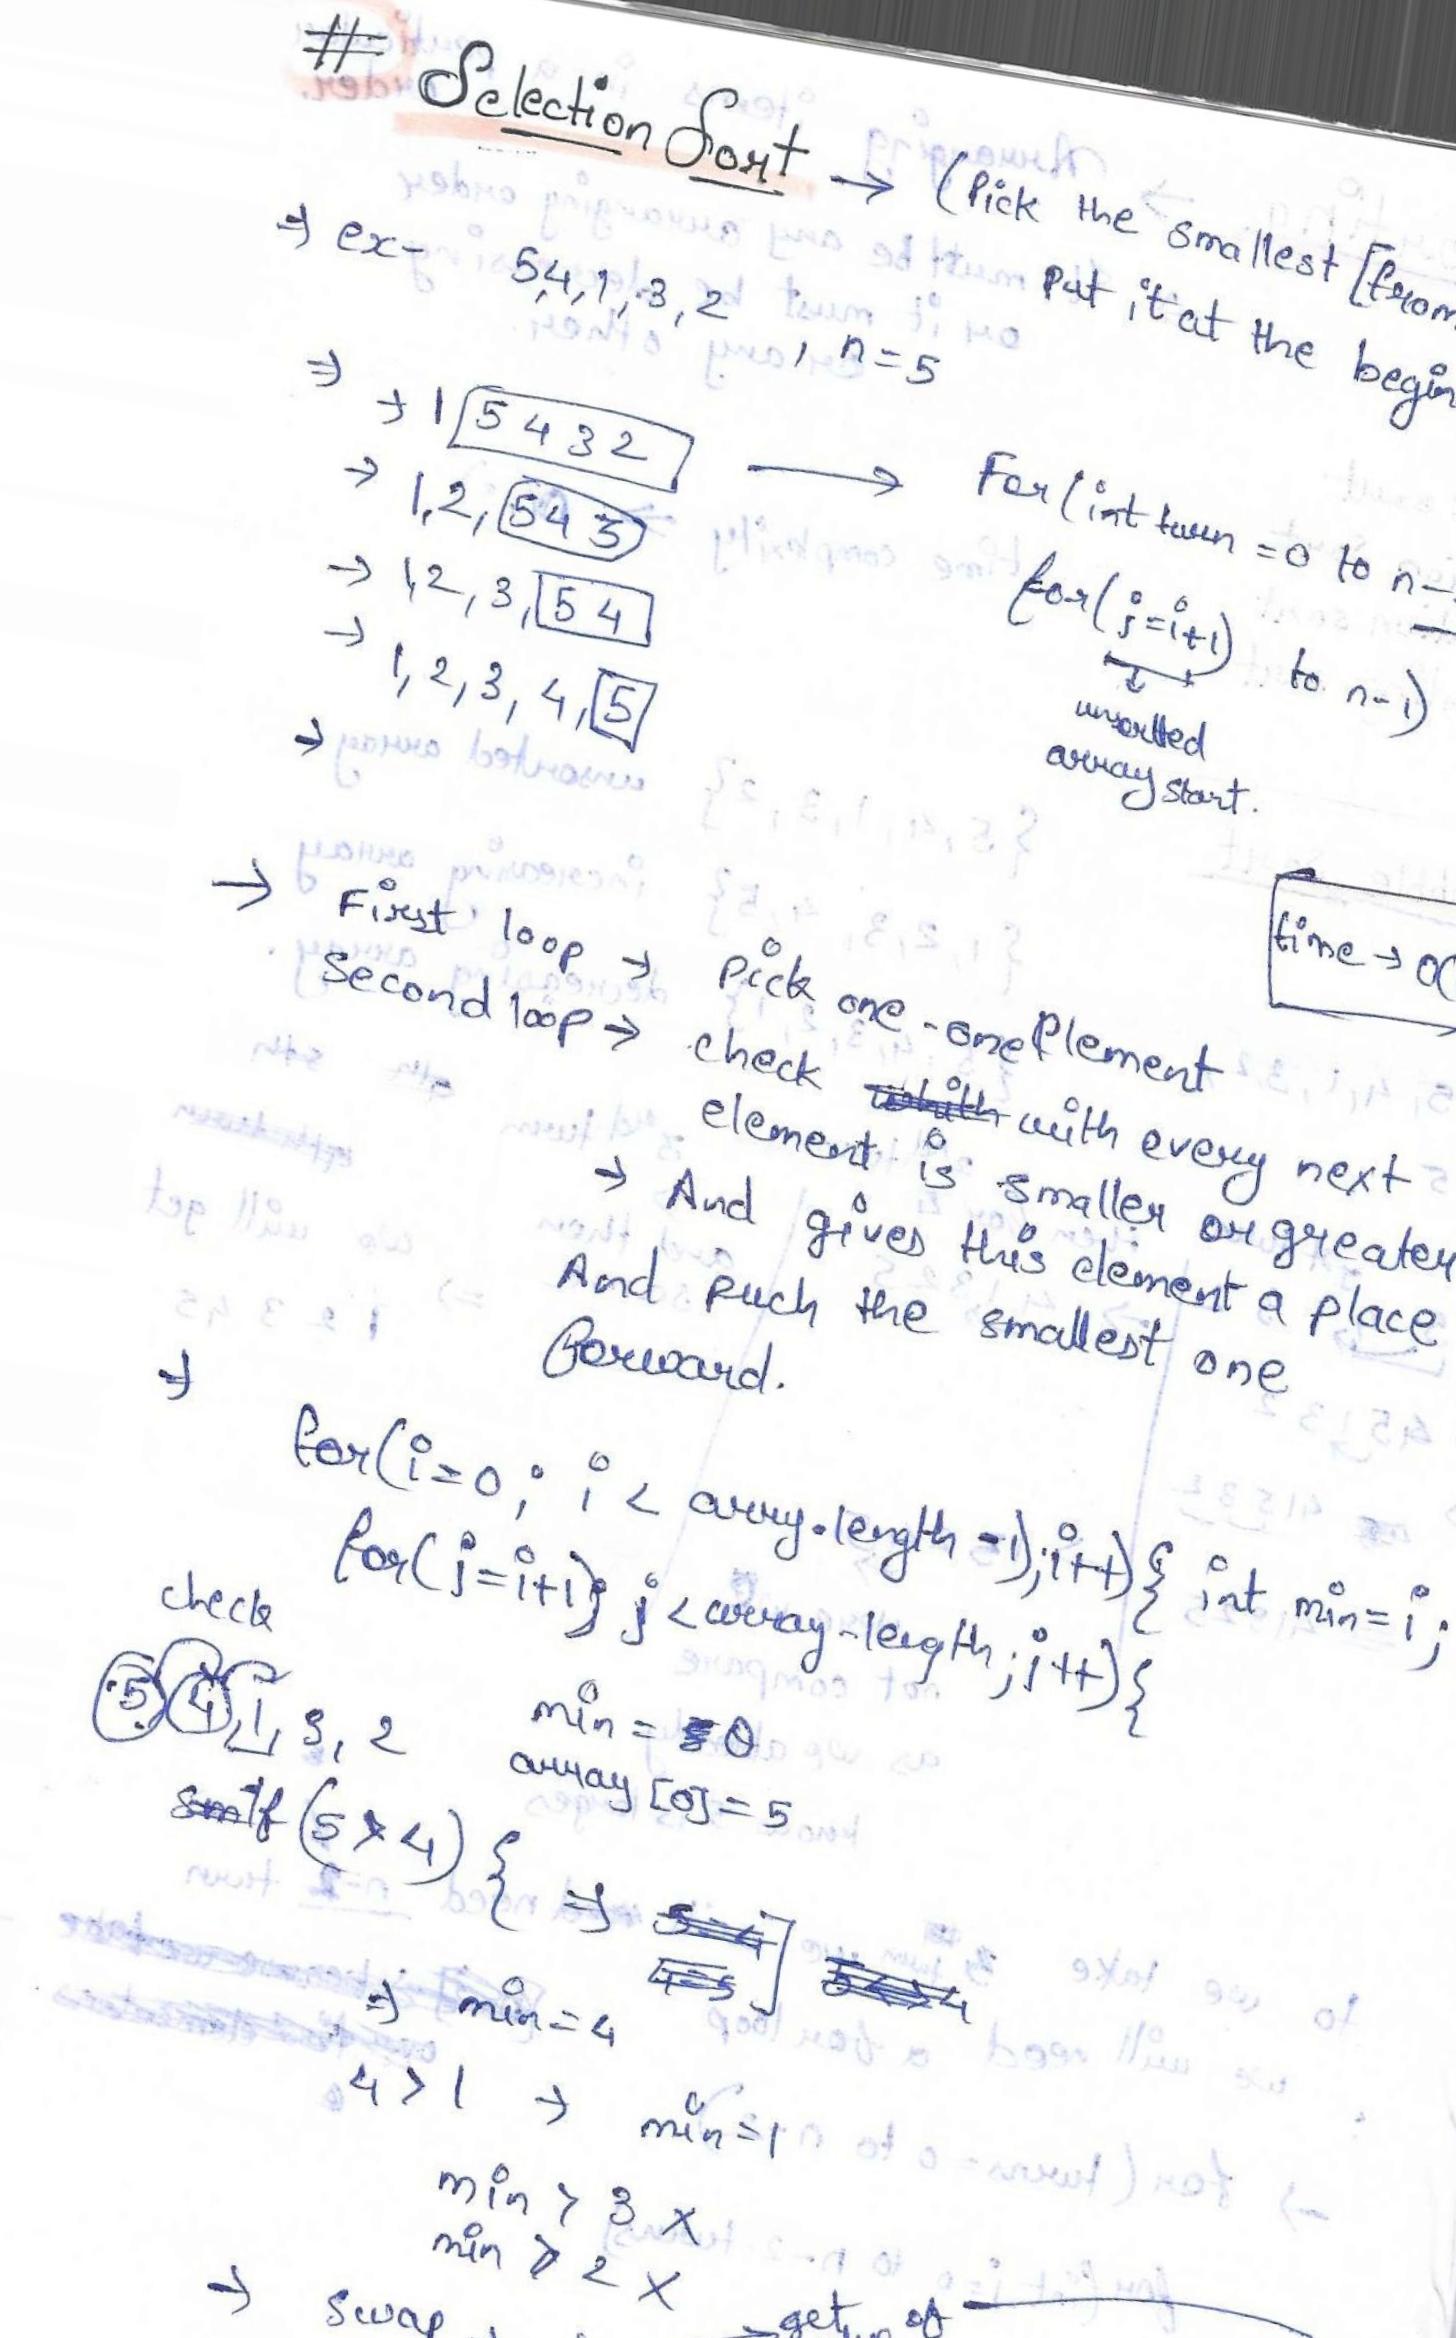 # Selection Sort → (Pick the smallest [from
Put it at the begin
⇒ ex- 5,4,1,3,2 , n=5
⇒
→ 1 5 4 3 2 → For(int turn = 0 to n-
→ 1,2, 5 4 3
for(j=i+1) to n-1)
→ 1,2,3, 5 4
unsorted
array start.
→ 1,2,3,4, 5
→
time → O(
→ First loop → Pick one-one Element
Second loop → check with every next
element is smaller or greater
→ And gives this element a place
And puch the smallest one
forward.
⇒
for(i=0; i < arry.length-1);i++){ int min=i;
for(j=i+1); j<array-length;j++){
check
5 4 1, 3, 2
min = 0
array[0]=5
if (5>4) {
⇒ 5=4
4=5
⇒ min=4
4>1 → min=1
min > 3 ×
min > 2 ×
→ Swap
get